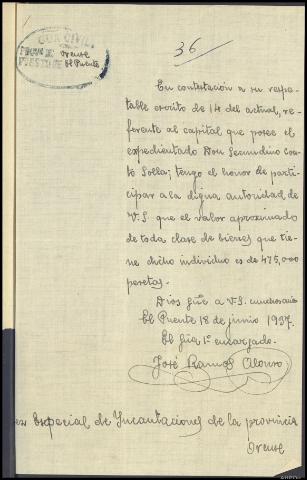 GUARDIA CIVIL
Orense
PUESTO DE El Puente
36
En contestación a su respe-
table escrito de 14 del actual, re-
ferente al capital que posee el
expedientado Don Secundino Cou-
to Solla; tengo el honor de parti-
cipar a la digna autoridad de
V.S. que el valor aproximado
de toda clase de bienes que tie-
ne dicho individuo es de 475,000
pesetas.
Dios gûe a V.S. muchos años
El Puente 18 de junio 1937.
El gûa 1º encargado.
José Ramos Alonso
ez Especial de Incautaciones de la provincia
Orense